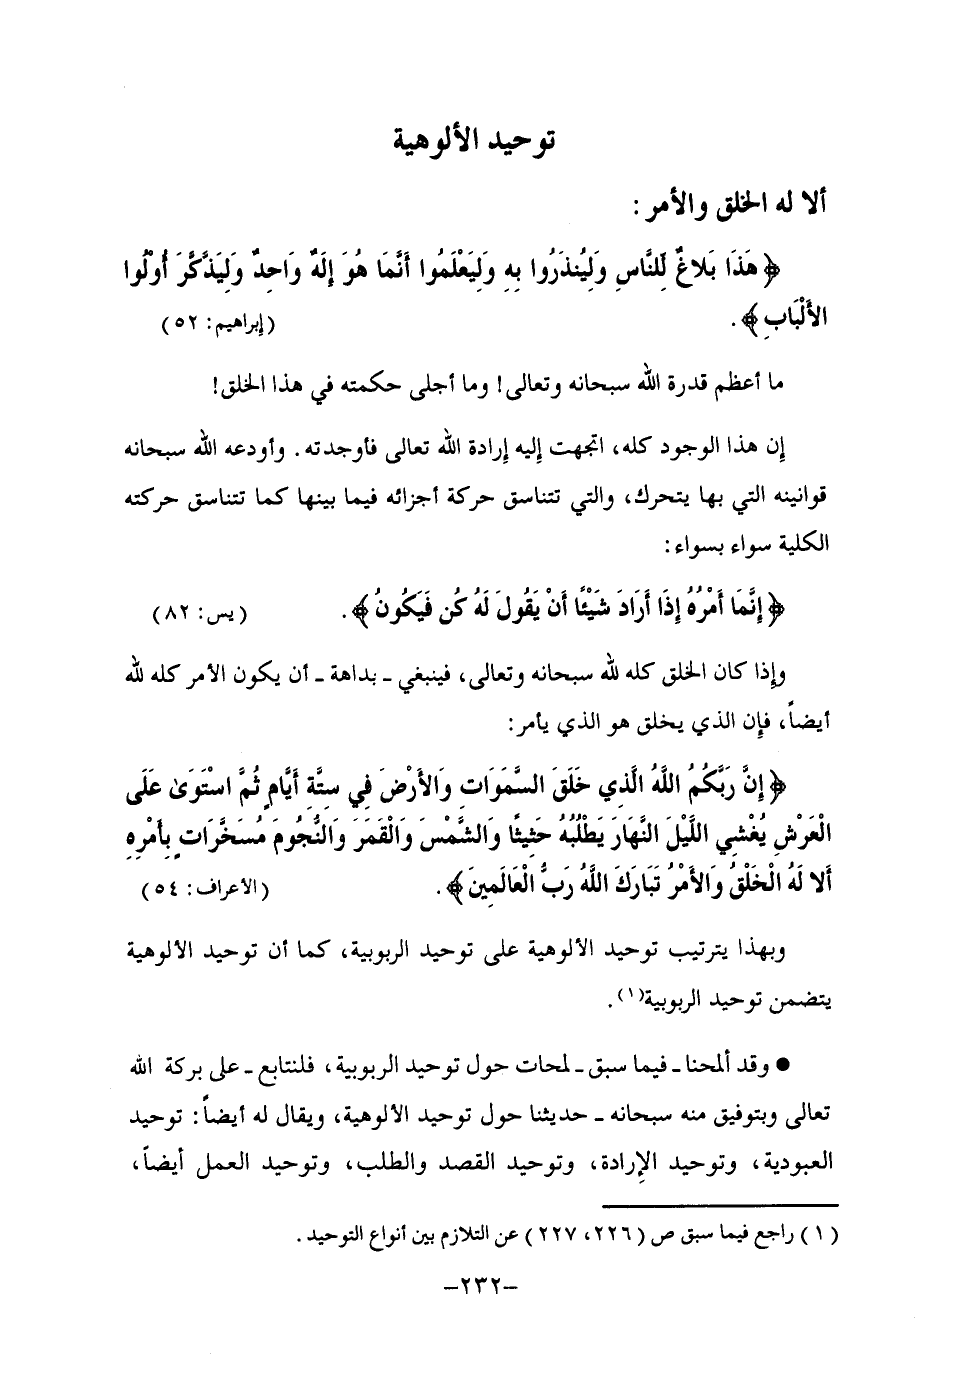 توحيد الألوهية
ألا له الخلق والأمر :
﴿هَذَا بَلاغٌ لِّلنَّاسِ وَلِيُنذَرُوا بِهِ وَلِيَعْلَمُوا أَنَّمَا هُوَ إِلَهٌ وَاحِدٌ وَلِيَذَّكَّرَ أُوْلُوا
الأَلْبَابِ﴾ . (إبراهيم: ٥٢)
ما أعظم قدرة الله سبحانه وتعالى! وما أجلى حكمته في هذا الخلق!
إن هذا الوجود كله، اتجهت إليه إرادة الله تعالى فأوجدته. وأودعه الله سبحانه
قوانينه التي بها يتحرك، والتي تتناسق حركة أجزائه فيما بينها كما تتناسق حركته
الكلية سواء بسواء:
﴿إِنَّمَا أَمْرُهُ إِذَا أَرَادَ شَيْئًا أَنْ يَقُولَ لَهُ كُن فَيَكُونُ﴾ . (يس: ٨٢)
وإذا كان الخلق كله لله سبحانه وتعالى، فينبغي ـ بداهة ـ أن يكون الأمر كله لله
أيضاً، فإن الذي يخلق هو الذي يأمر:
﴿إِنَّ رَبَّكُمُ اللَّهُ الَّذِي خَلَقَ السَّمَوَاتِ وَالأَرْضَ فِي سِتَّةِ أَيَّامٍ ثُمَّ اسْتَوَىٰ عَلَى
الْعَرْشِ يُغْشِي اللَّيْلَ النَّهَارَ يَطْلُبُهُ حَثِيثًا وَالشَّمْسَ وَالْقَمَرَ وَالنُّجُومَ مُسَخَّرَاتٍ بِأَمْرِهِ
أَلا لَهُ الْخَلْقُ وَالأَمْرُ تَبَارَكَ اللَّهُ رَبُّ الْعَالَمِينَ﴾ . (الأعراف: ٥٤)
وبهذا يترتيب توحيد الألوهية على توحيد الربوبية، كما أن توحيد الألوهية
يتضمن توحيد الربوبية(١) .
● وقد ألمحنا ـ فيما سبق ـ لمحات حول توحيد الربوبية، فلنتابع ـ على بركة الله
تعالى وبتوفيق منه سبحانه ـ حديثنا حول توحيد الألوهية، ويقال له أيضاً: توحيد
العبودية، وتوحيد الإرادة، وتوحيد القصد والطلب، وتوحيد العمل أيضاً،
(١) راجع فيما سبق ص (٢٢٦، ٢٢٧) عن التلازم بين أنواع التوحيد .
–٢٣٢–